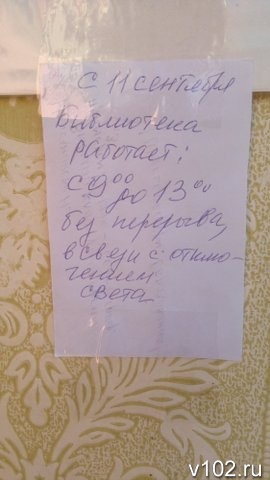 с 11 сентября
Библиотека
работает:
с 9⁰⁰ до 13⁰⁰
без перерыва,
в связи с отклю-
чением
света
v102.ru